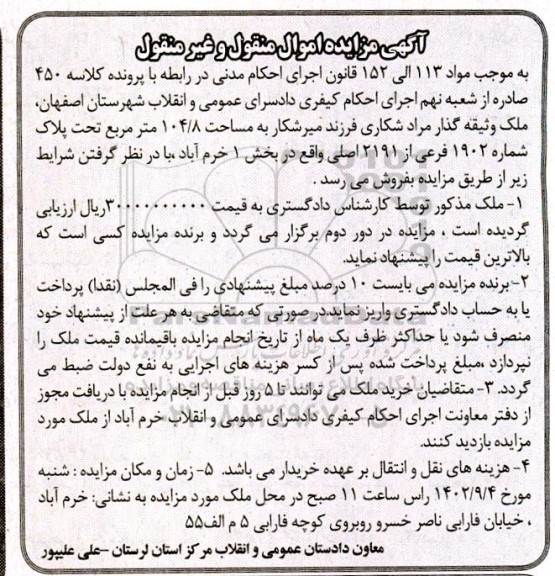 آگهی مزایده اموال منقول و غیر منقول
به موجب مواد ۱۱۳ الی ۱۵۲ قانون اجرای احکام مدنی در رابطه با پرونده کلاسه ۴۵۰
صادره از شعبه نهم اجرای احکام کیفری دادسرای عمومی و انقلاب شهرستان اصفهان،
ملک وثیقه گذار مراد شکاری فرزند میرشکار به مساحت ۱۰۴/۸ متر مربع تحت پلاک
شماره ۱۹۰۲ فرعی از ۲۱۹۱ اصلی واقع در بخش ۱ خرم آباد ،با در نظر گرفتن شرایط
زیر از طریق مزایده بفروش می رسد .
۱- ملک مذکور توسط کارشناس دادگستری به قیمت ۳۰۰۰۰۰۰۰۰۰۰ریال ارزیابی
گردیده است ، مزایده در دور دوم برگزار می گردد و برنده مزایده کسی است که
بالاترین قیمت را پیشنهاد نماید.
۲-برنده مزایده می بایست ۱۰ درصد مبلغ پیشنهادی را فی المجلس (نقدا) پرداخت
یا به حساب دادگستری واریز نماید.در صورتی که متقاضی به هر علت از پیشنهاد خود
منصرف شود یا حداکثر ظرف یک ماه از تاریخ انجام مزایده باقیمانده قیمت ملک را
نپردازد ،مبلغ پرداخت شده پس از کسر هزینه های اجرایی به نفع دولت ضبط می
گردد. ۳- متقاضیان خرید ملک می توانند تا ۵ روز قبل از انجام مزایده با دریافت مجوز
از دفتر معاونت اجرای احکام کیفری دادسرای عمومی و انقلاب خرم آباد از ملک مورد
مزایده بازدید کنند.
۴- هزینه های نقل و انتقال بر عهده خریدار می باشد. ۵- زمان و مکان مزایده : شنبه
مورخ ۱۴۰۲/۹/۴ راس ساعت ۱۱ صبح در محل ملک مورد مزایده به نشانی: خرم آباد
، خیابان فارابی ناصر خسرو روبروی کوچه فارابی ۵ م الف۵۵
معاون دادستان عمومی و انقلاب مرکز استان لرستان –علی علیپور
ParsNamadData